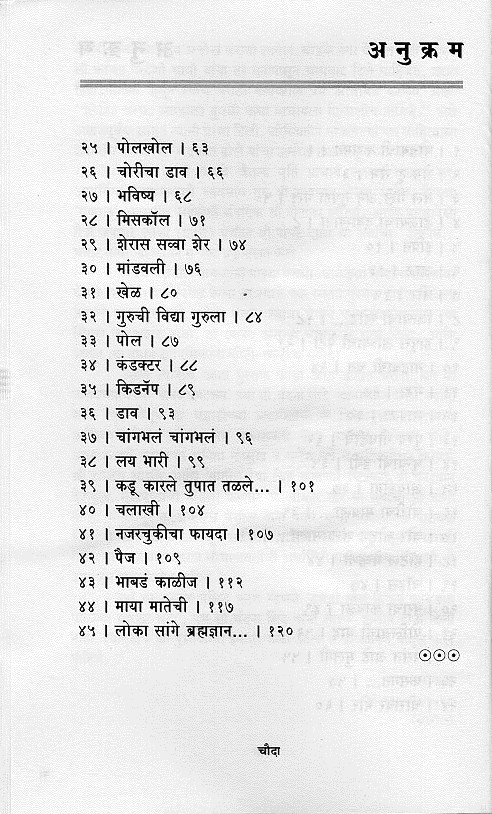 अनुक्रम
२५ । पोलखोल । ६३
२६ । चोरीचा डाव । ६६
२७ । भविष्य । ६८
२८ । मिसकॉल । ७१
२९ । शेरास सव्वा शेर । ७४
३० । मांडवली । ७६
३१ । खेळ । ८०
३२ । गुरुची विद्या गुरुला । ८४
३३ । पोल । ८७
३४ । कंडक्टर । ८८
३५ । किडनॅप । ८९
३६ । डाव । ९३
३७ । चांगभलं चांगभलं । ९६
३८ । लय भारी । ९९
३९ । कडू कारले तुपात तळले... । १०१
४० । चलाखी । १०४
४१ । नजरचुकीचा फायदा । १०७
४२ । पैज । १०९
४३ । भाबडं काळीज । ११२
४४ । माया मातेची । ११७
४५ । लोका सांगे ब्रह्मज्ञान... । १२०
चौदा